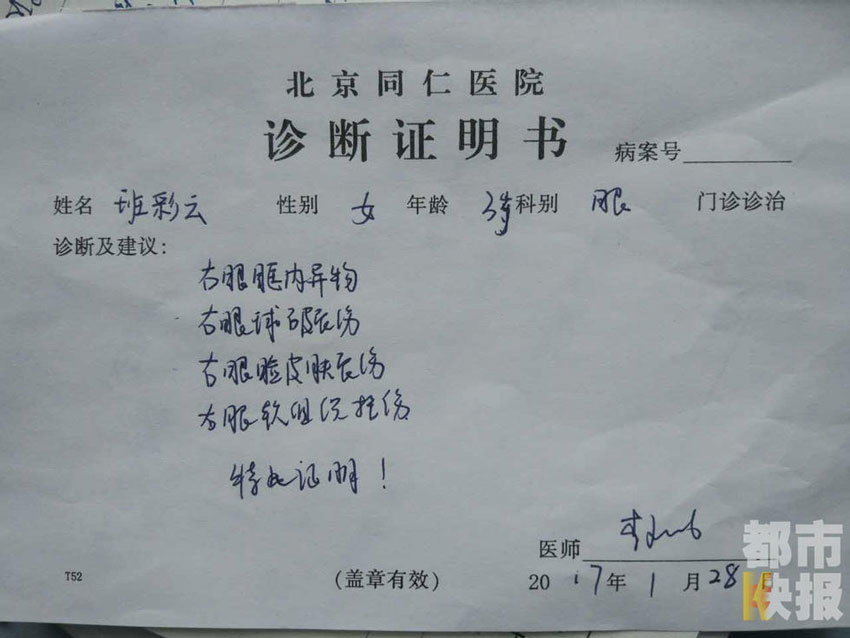 北京同仁医院
诊断证明书
病案号
姓名 班彩云 性别 女 年龄 3岁 科别 眼 门诊诊治
诊断及建议:
右眼眶内异物
右眼球破裂伤
右眼睑皮肤裂伤
右眼软组织挫伤
特此证明!
医师
T52 (盖章有效) 2017年1月28日
都市
快报